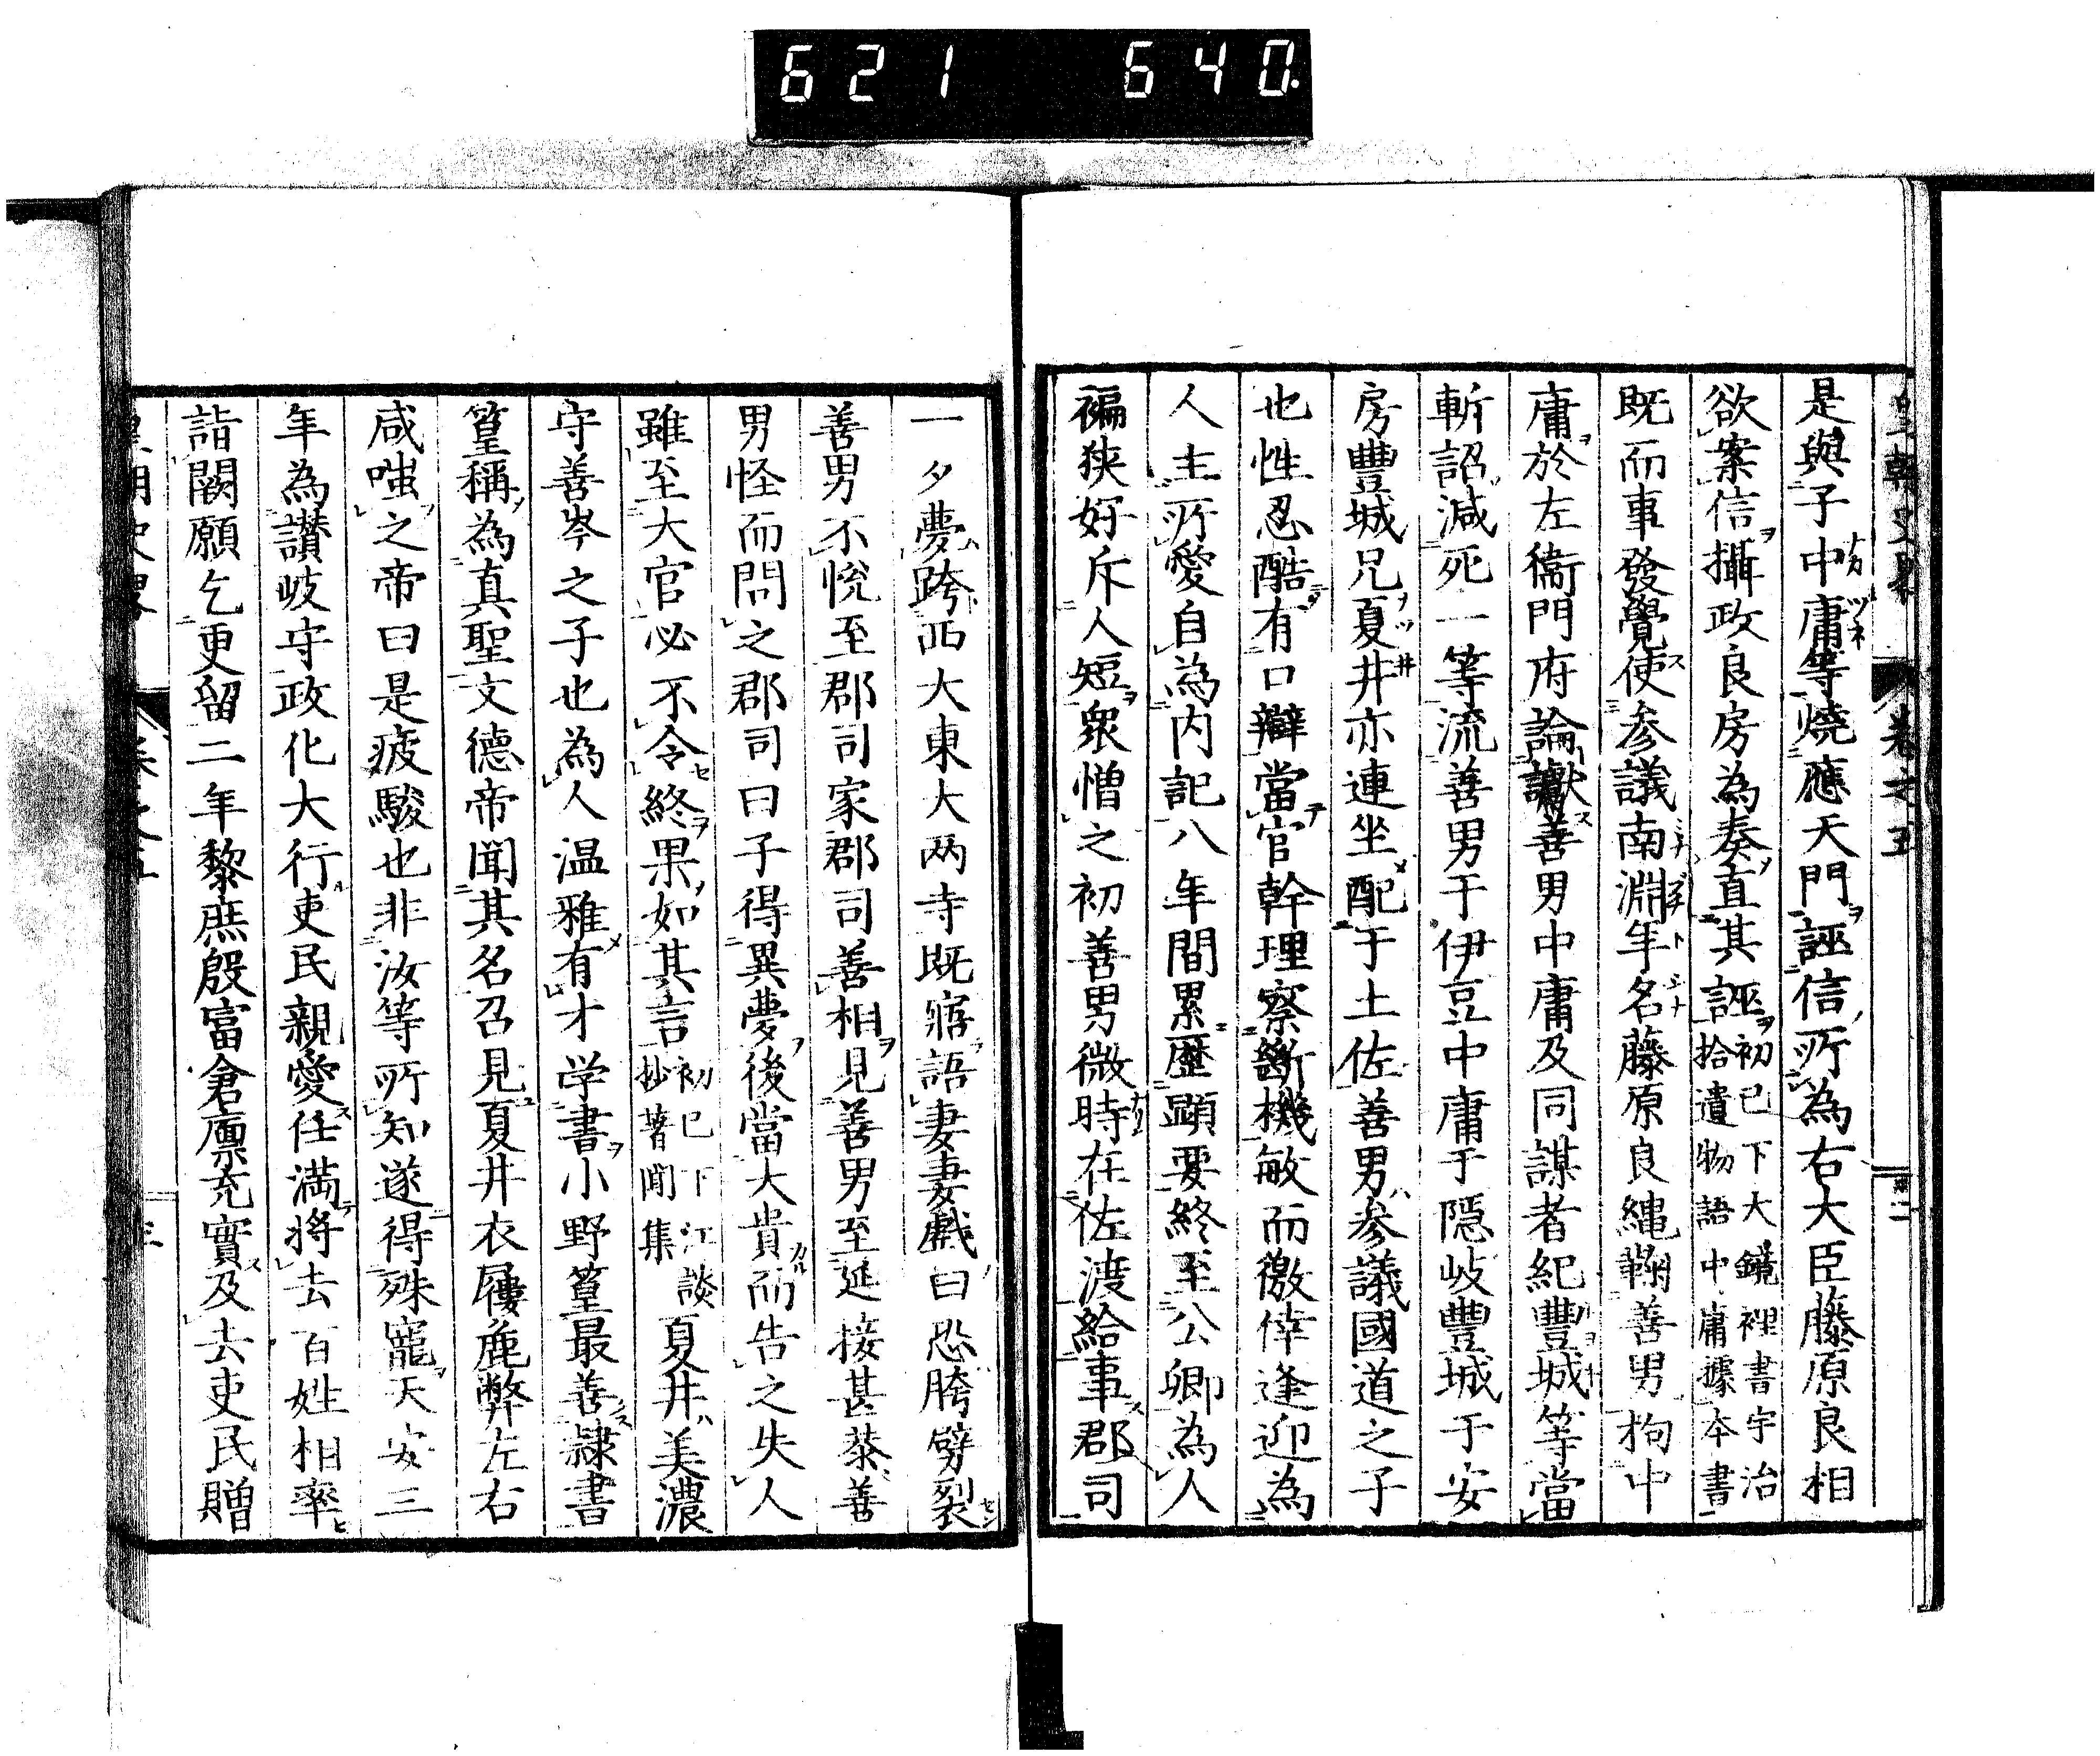 621 640
皇朝史畧 卷之五 二
是與子中庸等燒應天門誣信所為右大臣藤原良相
欲案信攝政良房為奏直其誣初已下大鏡裡書宇治拾遺物語中庸據本書
既而事發覺使參議南淵年名藤原良縄鞫善男拘中
庸於左衞門府論讞善男中庸及同謀者紀豐城等當
斬詔減死一等流善男于伊豆中庸于隱岐豐城于安
房豐城兄夏井亦連坐配于土佐善男參議國道之子
也性忍酷有口辯當官幹理察斷機敏而徼倖逢迎為
人主所愛自為内記八年間累歷顯要終至公卿為人
褊狹好斥人短衆憎之初善男微時在佐渡給事郡司
一夕夢跨西大東大兩寺既寤語妻妻戲曰恐胯劈裂
善男不悅至郡司家郡司善相見善男至延接甚恭善
男怪而問之郡司曰子得異夢後當大貴而告之失人
雖至大官必不令終果如其言初已下江談抄著聞集夏井美濃
守善岑之子也為人温雅有才学書小野篁最善隷書
篁稱為真聖文德帝聞其名召見夏井衣屨麁弊左右
咸嗤之帝曰是疲駿也非汝等所知遂得殊寵天安三
年為讃岐守政化大行吏民親愛任滿將去百姓相率
詣闕願乞更留二年黎庶殷富倉廪充實及去吏民贈